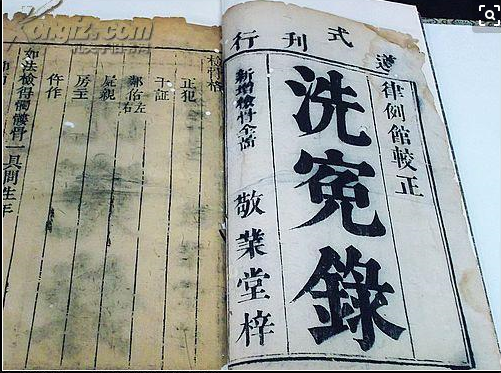 Kongfz.com
遵式刊行
律例館較正
洗寃錄
新增檢骨全啚
敬業堂梓
檢骨格
正犯
干証
鄰佑左右
屍親
房主
仵作
如法檢得髑髏骨一具問生年